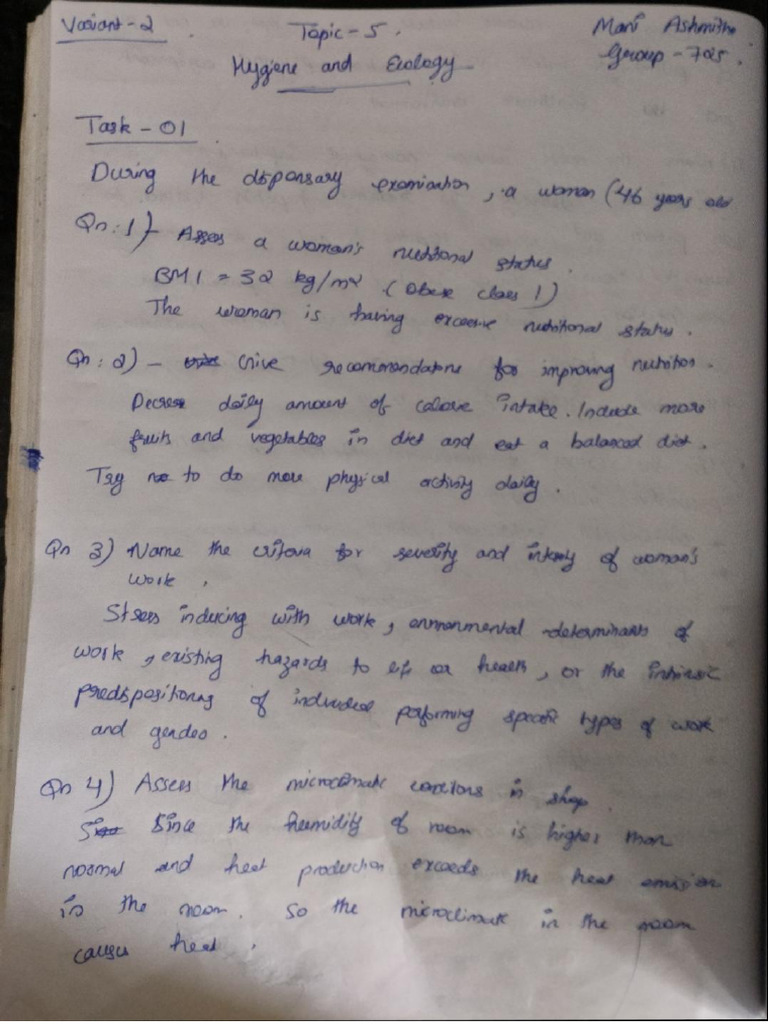 Variant-2
Topic-5.
Mani Ashmitha
Group-725.
Hygiene and Ecology
Task-01
During the dispensary examination, a woman (46 years old
Qn:1) Asses a woman's nutritional status.
BMI = 32 kg/m² (Obese class 1)
The woman is having excessive nutritional status.
Qn:2) - Give recommendations for improving nutrition.
Decrease daily amount of calorie intake. Include more
fruits and vegetables in diet and eat a balanced diet.
Try to do more physical activity daily.
Qn 3) Name the criteria for severity and intensity of woman's
work.
Stress inducing with work, environmental determinants of
work, existing hazards to life or health, or the intrinsic
predispositions of individual performing specific types of work
and gender.
Qn 4) Assess the microclimate conditions in shop
Since the humidity of room is higher than
normal and heat production exceeds the heat emission
in the room. So the microclimate in the room
causes heat.